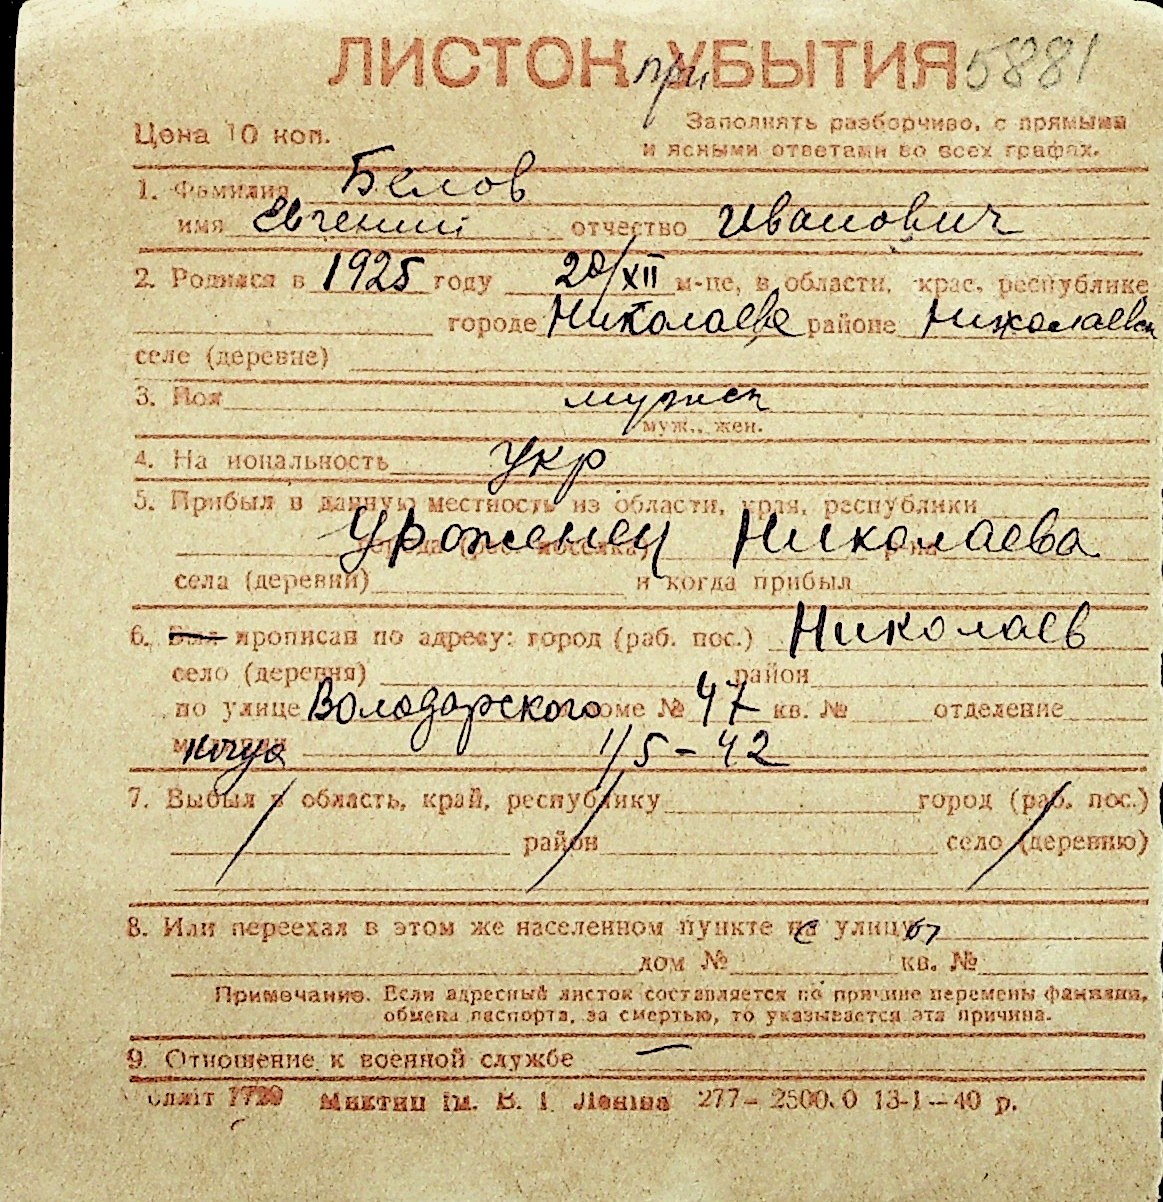 ЛИСТОК при УБЫТИЯ 5881
Цена 10 коп.
Заполнять разборчиво, с прямыми
и ясными ответами во всех графах.
1. Фамилия Белов
имя Евгений отчество Иванович
2. Родился в 1925 году 20/XII м-це, в области, крае, республике
городе Николаеве районе Николаевск
селе (деревне)
3. Пол мужск
муж., жен.
4. Национальность укр
5. Прибыл в данную местность из области, края, республики
Уроженец Николаева
села (деревни) и когда прибыл
6. Был прописан по адресу: город (раб. пос.) Николаев
село (деревня) район
по улице Володарского доме № 47 кв. № отделение
милиции когда 1/5-42
7. Выбыл в область, край, республику город (раб. пос.)
район село (деревню)
8. Или переехал в этом же населенном пункте с улицы
дом № кв. №
Примечание. Если адресный листок составляется по причине перемены фамилии,
обмена паспорта, за смертью, то указывается эта причина.
9. Отношение к военной службе —
ім. В. І. Леніна 277—2500.0 13-1—40 р.